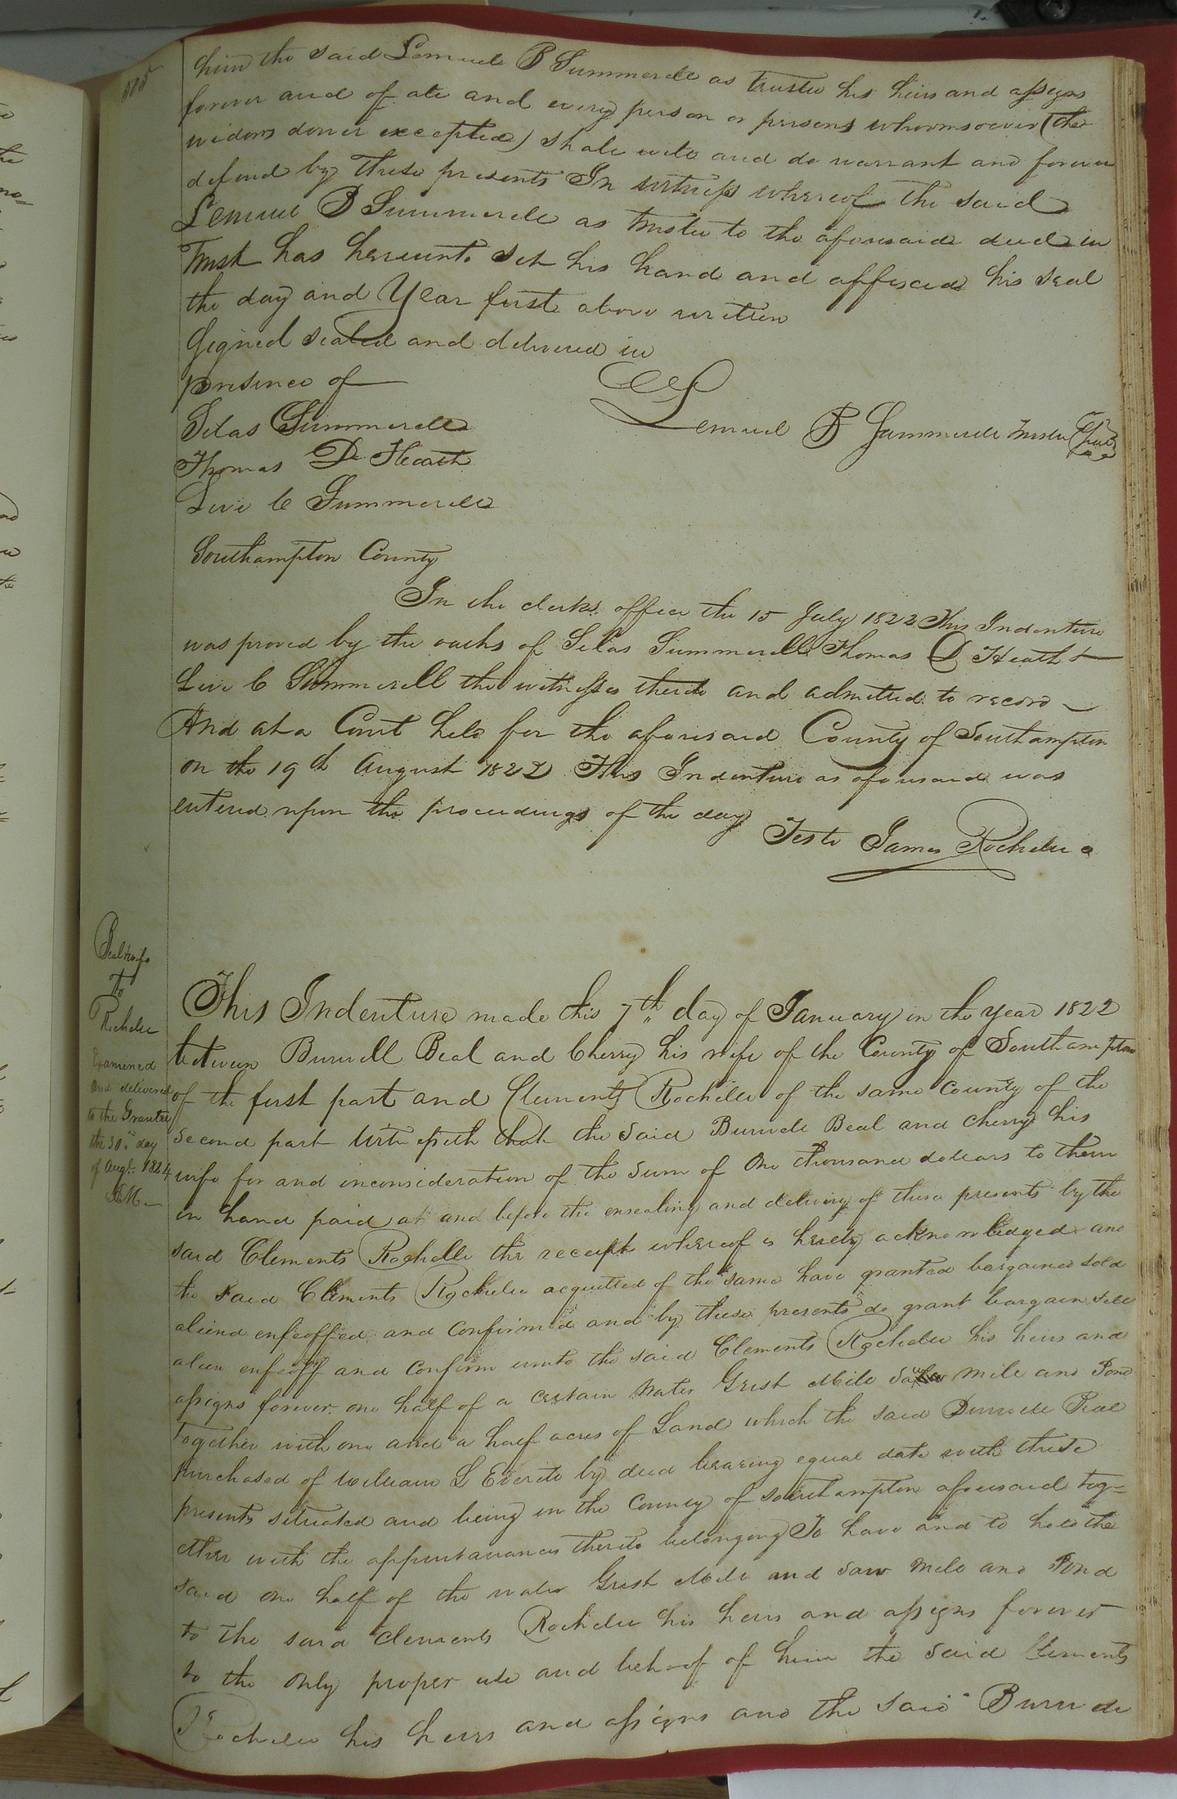 him the said Lemuel B Summerell as trustee his heirs and assigns
forever and of all and every person or persons whomsoever (the
widows dower excepted) shall will and do warrant and forever
defend by these presents In witness whereof the said
Lemuel B Summerell as trustee to the aforesaid deed in
Trust has hereunto set his hand and affixed his seal
the day and Year first above written
Signed sealed and delivered in
presence of
Lemuel B Summerell Trustee Seal
Silas Summerell
Thomas D Heath
Levi C Summerell
Southampton County
In the clerks office the 15 July 1822 This Indenture
was proved by the oaths of Silas Summerell Thomas D Heath &
Levi C Summerell the witnesses thereto and admitted to record
And at a Court held for the aforesaid County of Southampton
on the 19th August 1822 This Indenture as aforesaid was
entered upon the proceedings of the day
Teste James Rochelle C
Beal & wife
To
Rochelle
Examined
and delivered
to the Grantee
the 30th day
of Augt. 1824
This Indenture made this 7th day of January in the Year 1822
between Burwell Beal and Cherry his wife of the County of Southampton
of the first part and Clements Rochelle of the same County of the
second part Witnesseth that the said Burwell Beal and Cherry his
wife for and inconsideration of the sum of One thousand dollars to them
in hand paid at and before the ensealing and delivery of these presents by the
said Clements Rochelle the receipt whereof is hereby acknowledged and
the said Clements Rochelle acquitted of the same have granted bargained sold
aliend enfeoffed and confirmed and by these presents do grant bargain sell
alien enfeoff and confirm unto the said Clements Rochelle his heirs and
assigns forever one half of a certain Water Grist Mill Saw mill and Pond
together with one and a half acres of Land which the said Burwell Beal
purchased of William L Everitt by deed bearing equal date with these
presents situated and being in the County of Southampton aforesaid tog=
ether with the appurtanances thereto belonging To have and to hold the
said one half of the water Grist Mill and saw Mill and Pond
to the said Clements Rochelle his heirs and assigns forever
to the only proper use and behoof of him the said Clements
Rochelle his heirs and assigns and the said Burwell